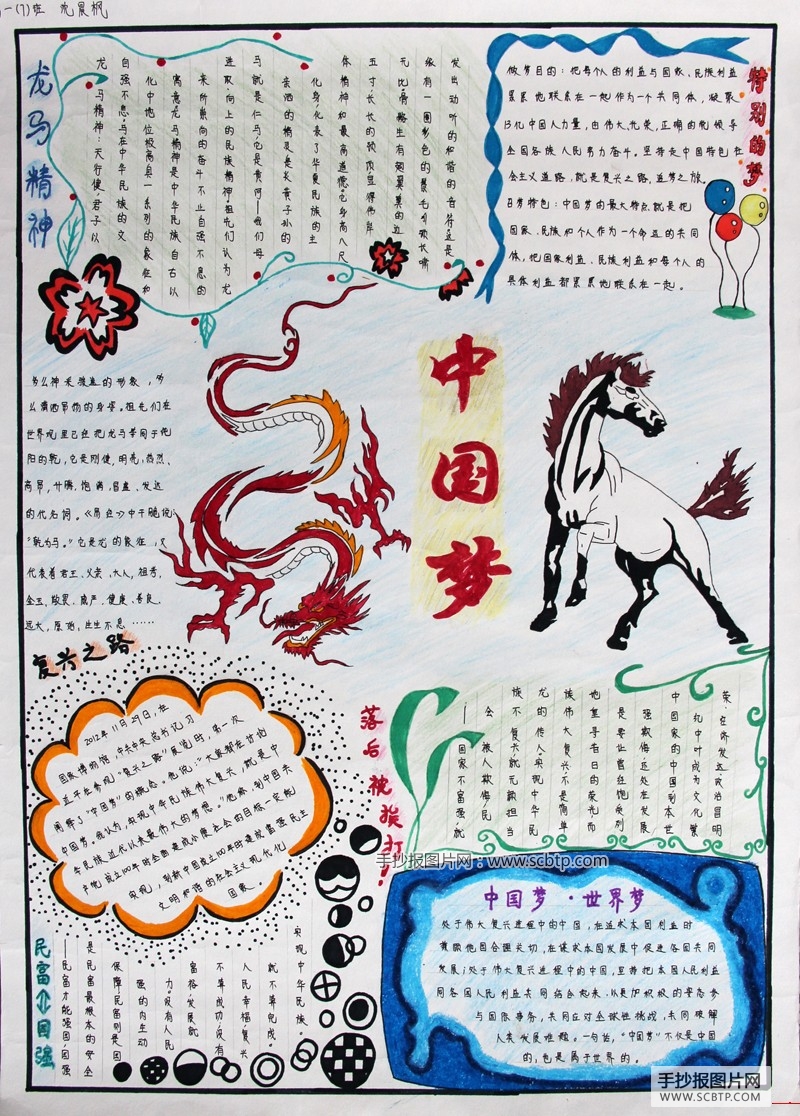 一(7)班 龙晨枫
龙马精神
龙马精神:天行健,君子以
自强不息。马在中华民族的文
化中地位极高,具一系列的象征和
寓意。龙马精神是中华民族自古以
来所崇尚的奋斗不止、自强不息的
进取、向上的民族精神。祖先们认为龙
马就是仁马,它是黄河——我们母
亲河的精灵,是炎黄子孙的
化身,代表了华夏民族的主
体精神和最高道德。它身高八尺
五寸,长长的颈项,显得伟岸
无比。骼生有翅翼,翼的边
缘有一圈彩色的鬃毛,引颈长嘶,
发出动听的和谐的音符。这是
特别的梦
做梦目的:把每个人的利益与国家、民族利益
紧紧地联系在一起作为一个共同体,凝聚
13亿中国人力量,由伟大、光荣、正确的党领导
全国各族人民努力奋斗。坚持走中国特色社
会主义道路,就是复兴之路、追梦之旅。
梦特色:中国梦的最大特点就是把
国家、民族和个人作为一个命运的共同
体,把国家利益、民族利益和每个人的
具体利益都紧紧地联系在一起。
多么神采强盛的形象,多
么潇洒昂扬的身姿。祖先们在
世界观里已经把龙与等同于纯
阳的乾,它是刚健、明亮、热烈、
高昂、升腾、饱满、昌盛、发达
的代名词。《易经》中干脆说:
"乾为马。"它是龙的象征,又
代表着君王、父亲、大人、祖考、
金玉、敬畏、威严、健康、善良、
远大、原始、生生不息……
中国梦
复兴之路
2012年11月29日,在
国家博物馆,中共中央总书记习
近平在参观"复兴之路"展览时,第一次
阐释了"中国梦"的概念。他说:"大家都在讨论
中国梦。我认为,实现中华民族伟大复兴,就是中
华民族近代以来最伟大的梦想。"他称,到中国共
产党成立100年时全面建成小康社会的目标一定能
实现,到新中国成立100年时建成富强民主
文明和谐的社会主义现代化
国家
落后被挨打!
——国家不富强,就
会被人欺侮,民
族不复兴,就无颜担当
龙的传人。实现中华民
族伟大复兴,不是简单
地重寻昔日的荣光,而
是要让曾经饱受列
强欺侮、还处在发展
中国家的中国,到本世
纪中叶成为文化繁
荣、经济发达、政治昌明
手抄报图片网:www.scbtp.com
民富⇕国强
——民富才能强国,国强
是民富最根本的安全
保障。民富则是国
强的内生动
力。没有人民
富裕,发展就
不算成功;没有
人民幸福,复兴
就不算完成。
实现中华民族
中国梦·世界梦
处于伟大复兴进程中的中国,在追求本国利益时
兼顾他国合理关切,在谋求本国发展中促进各国共同
发展;处于伟大复兴进程中的中国,坚持把本国人民利益
同各国人民利益共同结合起来,以更加积极的姿态参
与国际事务,共同应对全球性挑战,共同破解
人类发展难题。一句话,"中国梦"不仅是中国
的,也是属于世界的。
手抄报图片网
WWW.SCBTP.COM